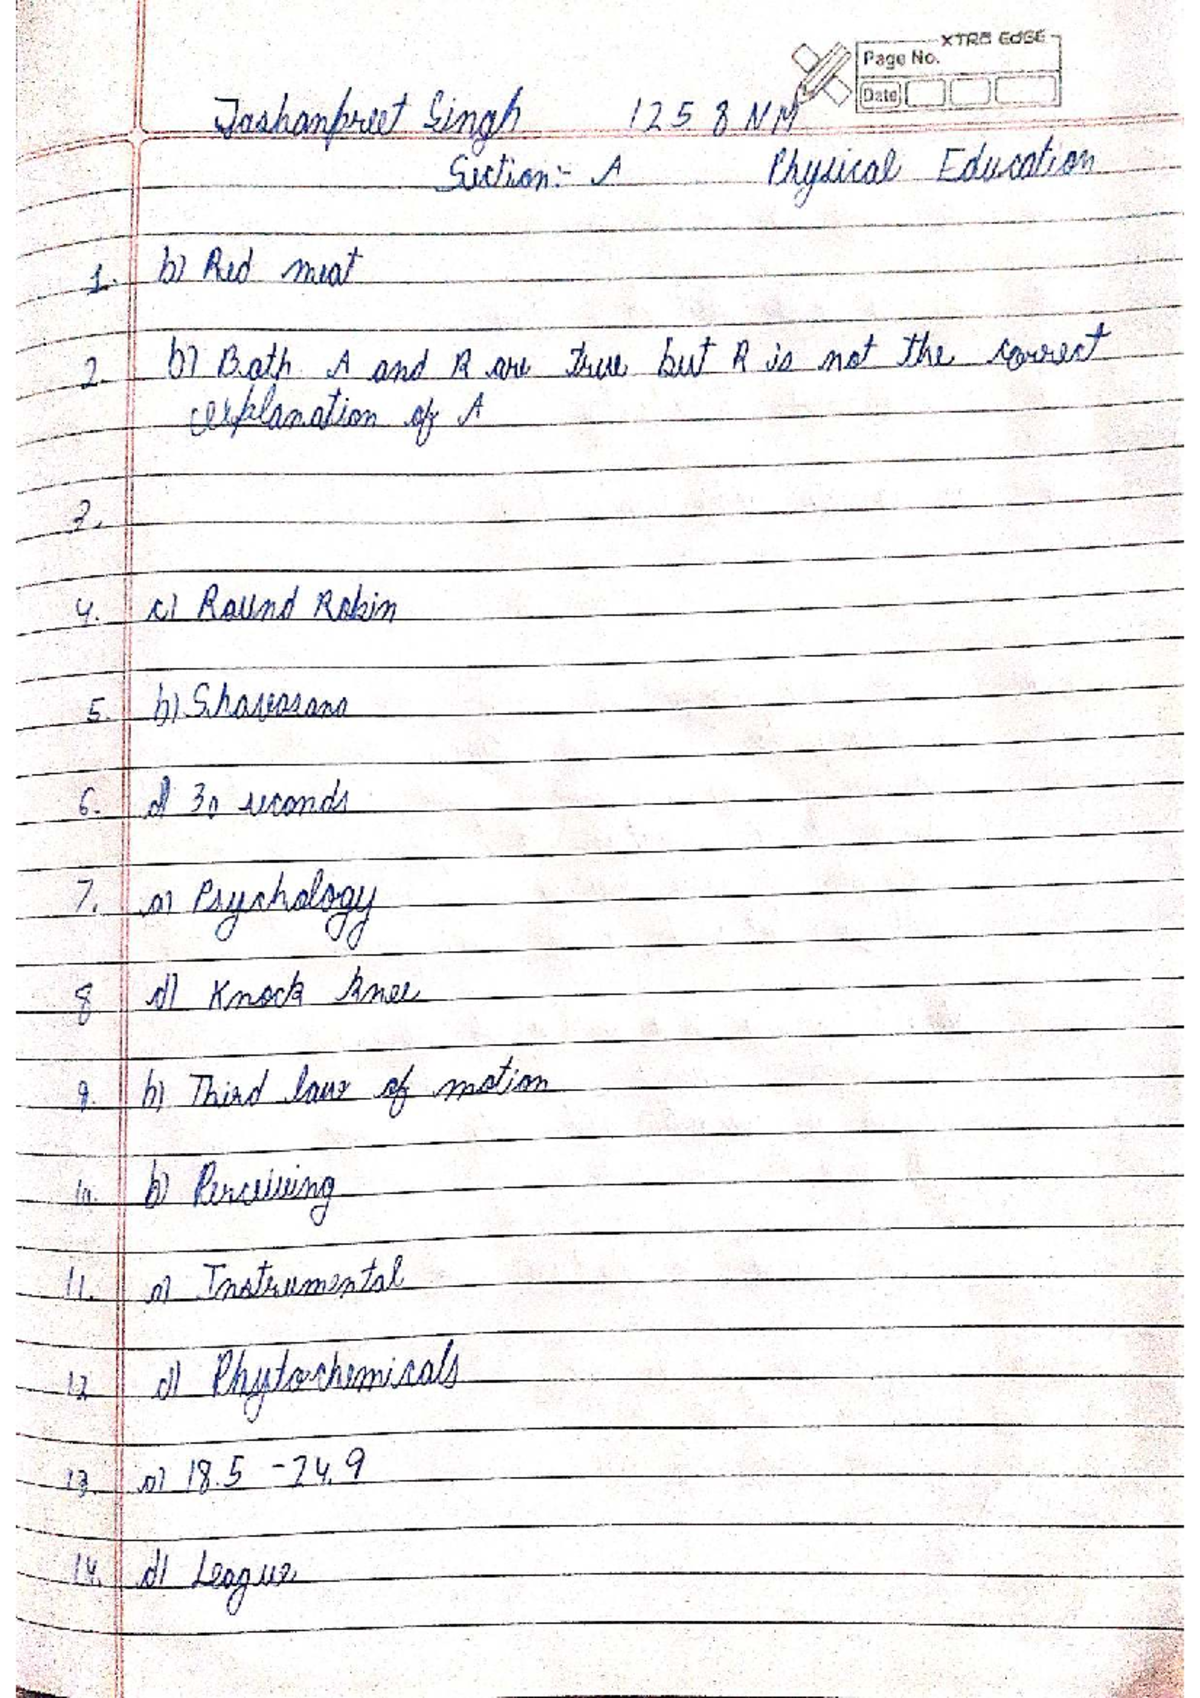 XTRA EDGE
Page No.
Date
Jashanpreet Singh 1258 NM
Section:- A Physical Education
1. b) Red meat
2. b) Both A and R are true but R is not the correct
explanation of A
3.
4. c) Round Robin
5. b) Shavasana
6. d) 30 seconds
7. a) Psychology
8 d) Knock knee
9. b) Third law of motion
10. b) Perceiving
11. a) Instrumental
12 d) Phytochemicals
13. a) 18.5 - 24.9
14. d) League